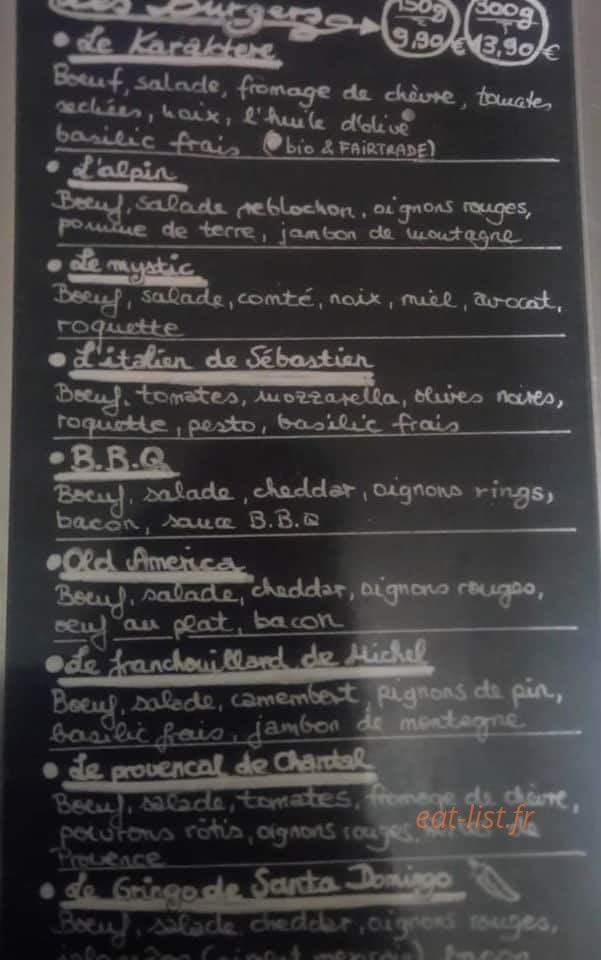 Les Burgers 150g 300g
9,90 € 13,90 €
• Le Karaktere
Boeuf, salade, fromage de chèvre, tomates
sechées, noix, l'huile d'olive
basilic frais (bio & FAiRTRADE)
• L'alpin
Boeuf, salade, reblochon, oignons rouges,
pomme de terre, jambon de montagne
• Le mystic
Boeuf, salade, comté, noix, miel, avocat,
roquette
• L'italien de Sébastien
Boeuf, tomates, mozzarella, olives noires,
roquette, pesto, basilic frais
• B.B.Q
Boeuf, salade, cheddar, oignons rings,
bacon, sauce B.B.Q
• Old America
Boeuf, salade, cheddar, oignons rouges,
oeuf au plat, bacon
• Le franchouillard de Michel
Boeuf, salade, camembert, pignons de pin,
basilic frais, jambon de montagne
• Le provencal de Chantal
Boeuf, salade, tomates, fromage de chèvre,
poivrons rôtis, oignons rouges, de
Provence
eat-list.fr
• Le Gringo de Santa Domingo
Boeuf, salade, cheddar, oignons rouges,
(piment mexicain), bacon